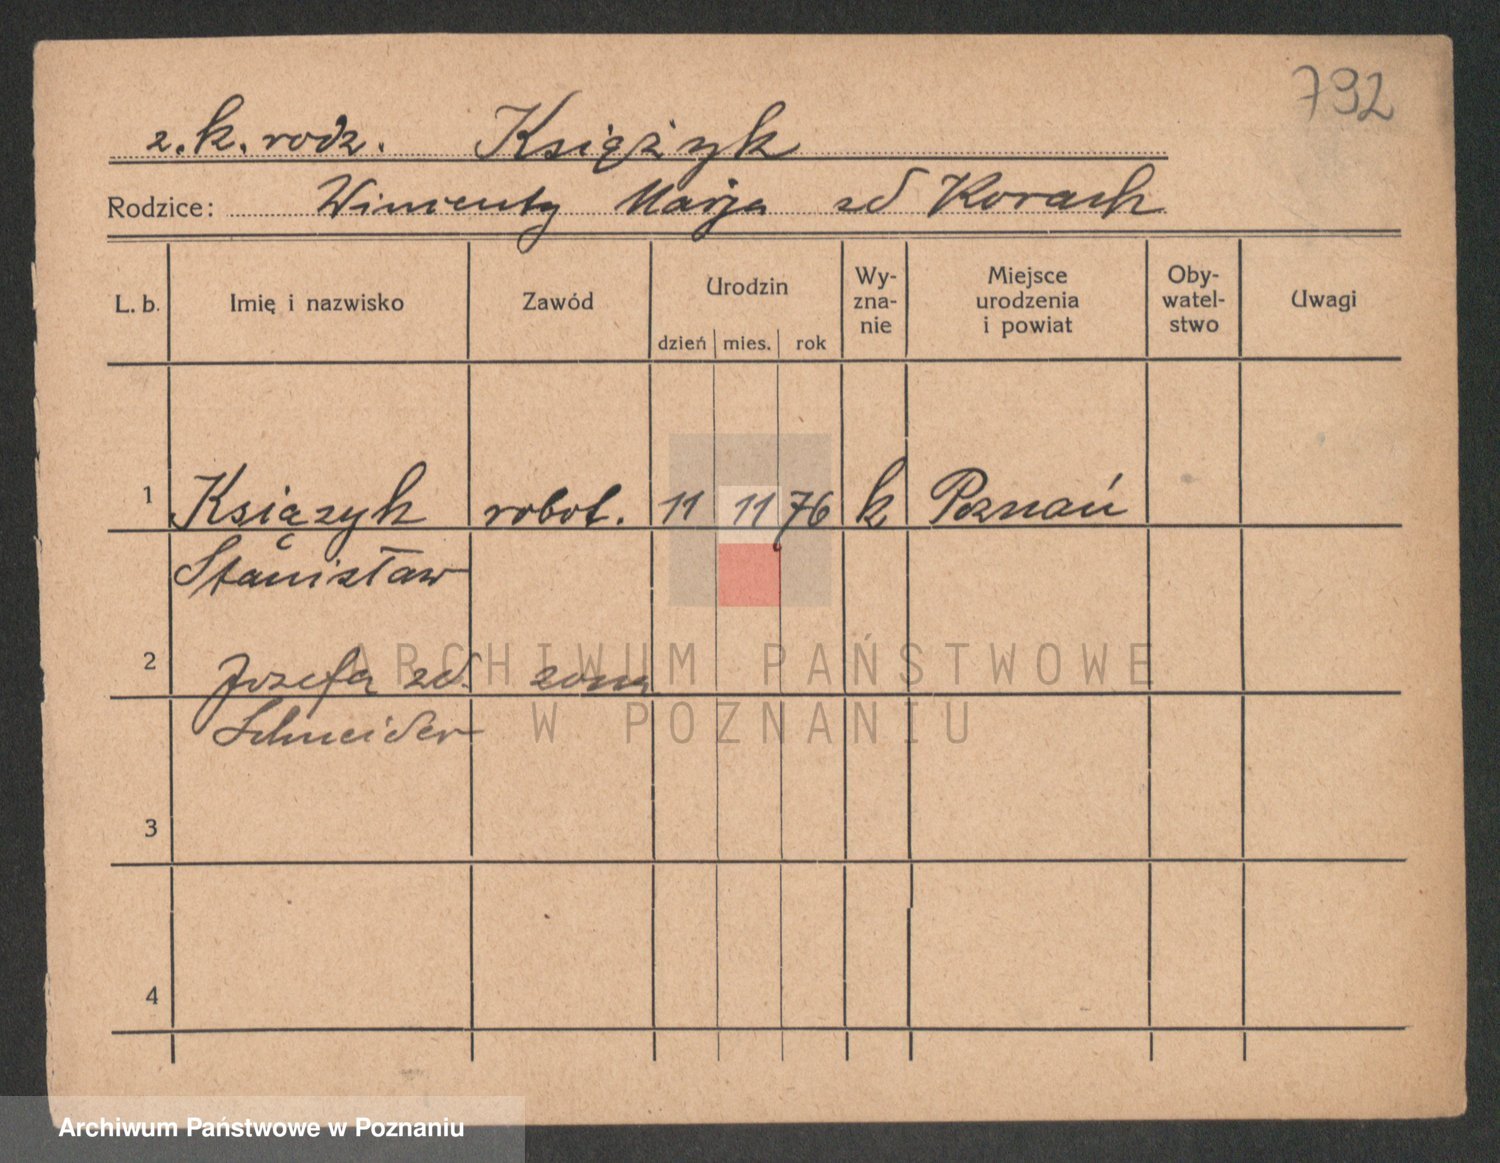 792
z.k. rodz. Książyk
Rodzice: Wincenty Marja zd Korach
L. b. Imię i nazwisko Zawód Urodzin dzień mies. rok Wy-zna-nie Miejsce urodzenia i powiat Oby-watel-stwo Uwagi
1 Książyk robot. 11 11 76 k Poznań
Stanisław
2 Józefa zd. żona
Schneider
3
4
ARCHIWUM PAŃSTWOWE
W POZNANIU
Archiwum Państwowe w Poznaniu